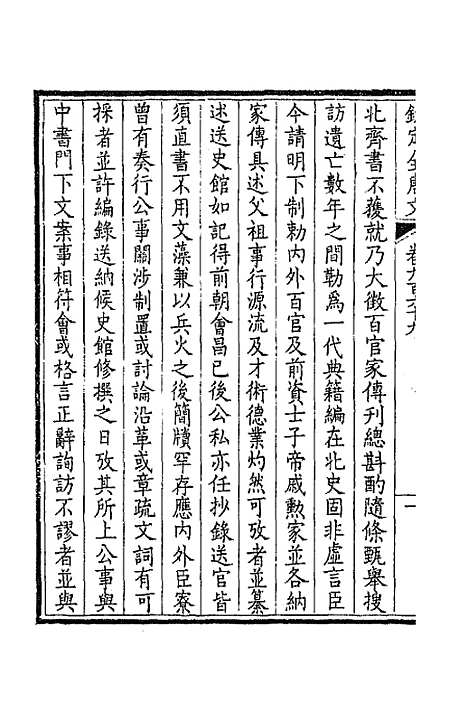 欽定全唐文　卷九百六十九　一
北齊書不獲就乃大徵百官家傳刊總斟酌隨條甄舉搜
訪遺亡數年之間勒爲一代典籍編在北史固非虛言臣
今請明下制勅內外百官及前資士子帝戚勲家並各納
家傳具述父祖事行源流及才術德業灼然可攷者並纂
述送史館如記得前朝會昌已後公私亦任抄錄送官皆
須直書不用文藻兼以兵火之後簡牘罕存應內外臣寮
曾有奏行公事關涉制置或討論沿革或章疏文詞有可
採者並許編錄送納候史館修撰之日攷其所上公事與
中書門下文案事相符會或格言正辭詢訪不謬者並與